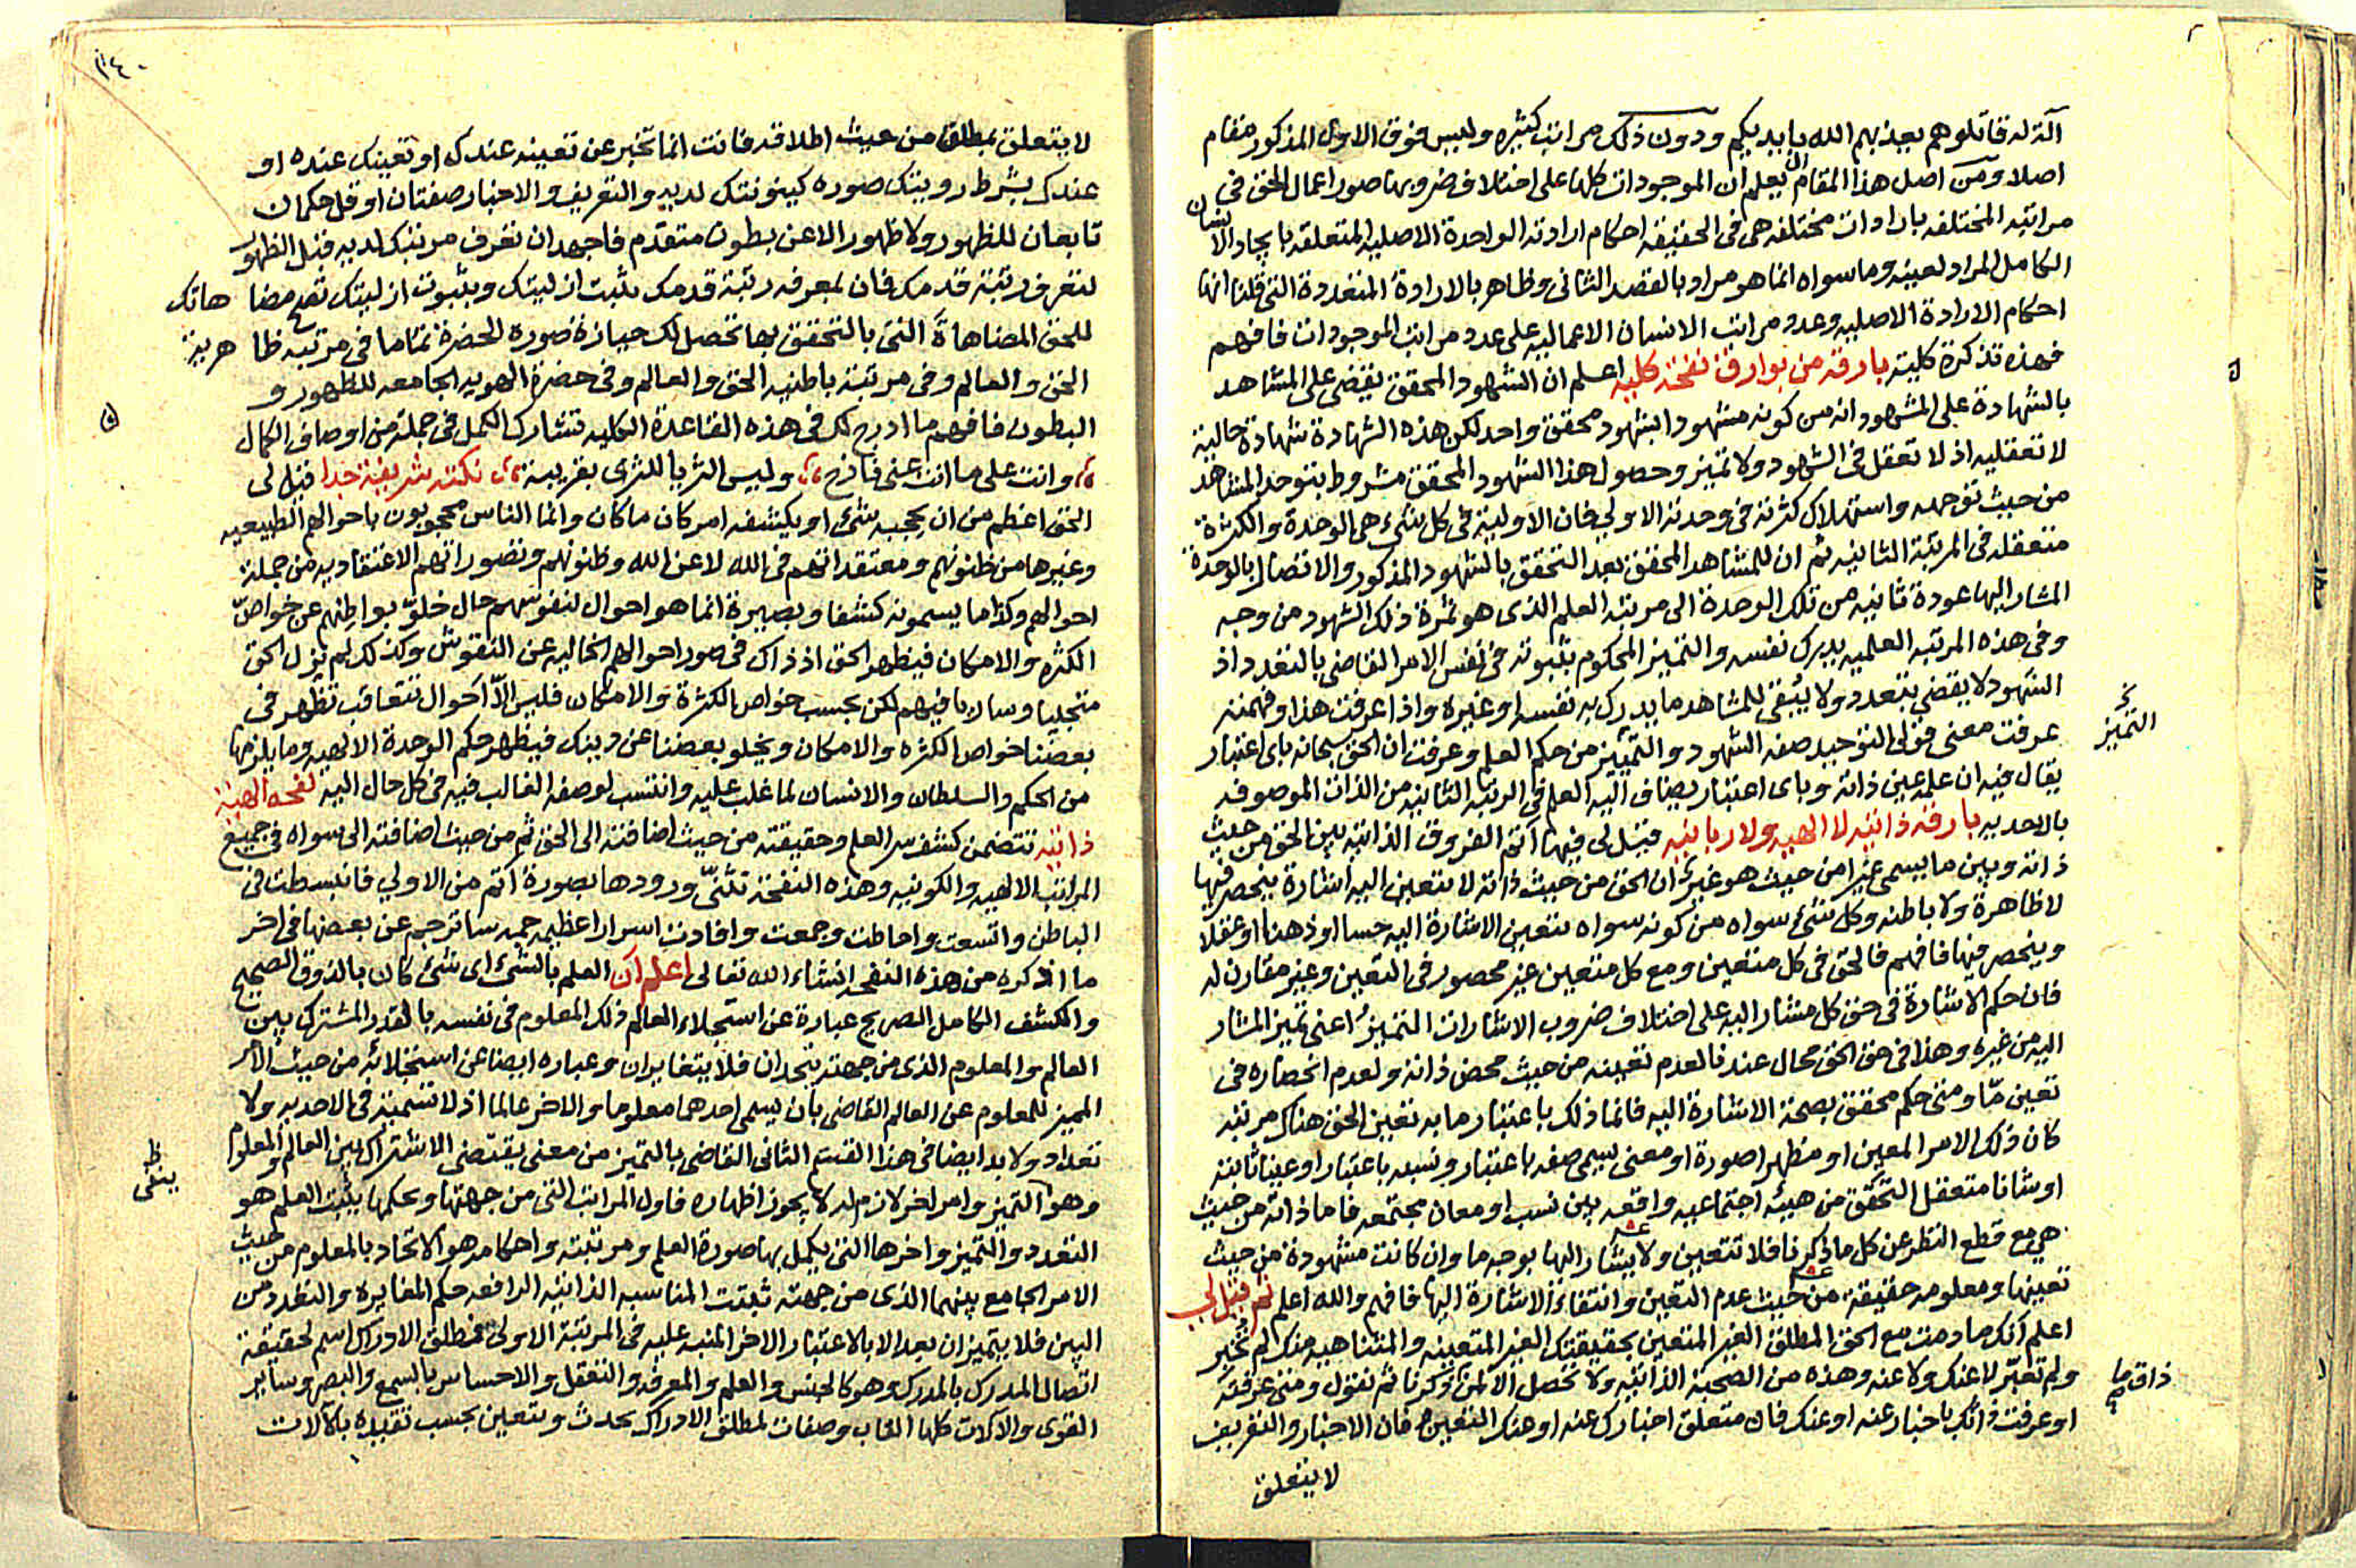 آلة له قاتلوهم يعذبهم الله بايديكم ودون ذلك مراتب كثيره وليس فوق الاول المذكور مقام
اصلا ومن اصل هذا المقام يعلم ان الموجودات كلها على اختلاف ضروبها صور اعمال الحق فى
مراتبه المختلفه بارادات مختلفه هى فى الحقيقه احكام ارادته الواحدة الاصليه المتعلقه بايجاد الانسان
الكامل المراد لعينه وما سواه انما هو مراد بالقصد الثانى وظاهر بالارادة المتعددة التى قلنا انها
احكام الارادة الاصليه وعدد مراتب الانسان الاعماليه على عدد مراتب الموجودات فافهم
فهذه تذكرة كلية بارقه من بوارق نفحة كليه اعلم ان الشهود المحقق يقضى على المشاهد
بالشهادة على المشهود انه من كونه مشهودا بشهود محقق واحد لكن هذه الشهادة شهادة حالية
لا تعقليه اذ لا تعقل فى الشهود ولا تميز وحصول هذا الشهود المحقق مشروط بتوحد المشاهد
من حيث توجهه واستهلاك كثرته فى وحدته الاولى فان الاولية فى كل شىء هى الوحدة والكثرة
متعقله فى المرتبة الثانيه ثم ان للمشاهد المحقق بعد التحقق بالشهود المذكور والاتصال بالوحدة
المشار اليها عودة ثانيه من تلك الوحدة الى مرتبة العلم الذى هو ثمرة ذلك الشهود من وجه
وفى هذه المرتبه العلميه يدرك نفسه والتميز المحكوم بثبوته فى نفس الامر القاضى بالتعدد اذ
الشهود لا يقضى بتعدد ولا يبقى للمشاهد ما يدرك به نفسه او غيره واذا عرفت هذا وفهمته
عرفت معنى قولى التوحيد صفه الشهود والتمييز من حكم العلم وعرفت ان الحق سبحانه باى اعتبار
التميز
يقال فيه ان علمه عين ذاته وباى اعتبار يضاف اليه العلم فى الرتبة الثانيه من الذات الموصوفه
بالاحديه بارقه ذاتيه لا الهيه ولا ربانيه قيل لى فيها اتم الفروق الذاتيه بين الحق من حيث
ذاته وبين ما يسمى غيرا من حيث هو غير ان الحق من حيث ذاته لا يتعين اليه اشارة ينحصر فيها
لا ظاهرة ولا باطنه وكل شىء سواه من كونه سواه تتعين الاشارة اليه حسا او ذهنا او عقلا
وينحصر فيها فافهم فالحق فى كل متعين ومع كل متعين غير محصور فى التعين وغير مقارن له
فان حكم الاشارة فى حق كل مشار اليه على اختلاف ضروب الاشارات التميز اعنى تميز المشار
اليه من غيره وهذا فى حق الحق محال عندنا لعدم تعينه من حيث محض ذاته ولعدم انحصاره فى
تعين ما ومتى حكم محقق بصحة الاشارة اليه فانما ذلك باعتبار ما به تعين الحق هناك مرتبة
كان ذلك الامر المعين او مظهرا صورة او معنى يسمى صفه باعتبار ونسبه باعتبار او عينا ثابته
او شانا متعقل التحقق من هيئه اجتماعيه واقعه بين نسب او معان مجتمعه فاما ذاته من حيث
هى مع قطع النظر عن كل ما ذكرنا فلا تتعين ولا يشار اليها بوجه ما وان كانت مشهودة من حيث
تعينها ومعلومه حقيقة من حيث عدم التعين وانتفاء الاشارة اليها فافهم والله اعلم ثم قيل لى
اعلم انك ما دمت مع الحق المطلق الغير المتعين بحقيقتك الغير المتعينه والمتناهيه منك لم تخبر
ولم تعبر لا عنك ولا عنه وهذه من الصحبة الذاتيه ولا تحصل الا لمن ذكرنا ثم نقول ومتى عرفته
ذاق ما
او عرفت ذاتك باخبار عنه او عنك فان متعلق اخبارك عنه او عنك التعين فان الاخبار والتعريف
لا يتعلق
لا يتعلق بمطلق من حيث اطلاقه فانت انما تخبر عن تعينه عندك او تعينك عنده او
عندك بشرط رويتك صوره كينونتك لديه والتعريف والاخبار صفتان او قل حكمان
تابعان للظهور ولا ظهور الا عن بطون متقدم فاجهد ان تعرف مرتبتك لديه قبل الظهور
لتعرف رتبة قدمك فان لمعرفه رتبة قدمك يثبت ازليتك وبثبوت ازليتك تصح مضاهاتك
للحق المضاهاة التى بالتحقق بها تحصل لك حيازة صورة الحضرة تماما فى مرتبه ظاهرية
الحق والعالم وفى مرتبة باطنيه الحق والعالم وفى حضرة الهويه الجامعه للظهور و
البطون فافهم ما ادرج لك فى هذه القاعدة الكليه تشارك الكمل فى جملة من اوصاف الكمال
وانت على ما انت عنى فازح وليس الثريا للثرى بقريبة نكتة شريفة جدا قيل لى
الحق اعظم من ان يحجبه شىء او يكشفه امر كان ما كان وانما الناس محجوبون باحوالهم الطبيعيه
وغيرها من ظنونهم ومعتقداتهم فى الله لا عن الله وظنونهم وتصوراتهم الاعتقاديه من جملة
احوالهم وكذا ما يسمونه كشفا وبصيرة انما هو احوال لنفوسهم حال خلو بواطنهم عن خواص
الكثره والامكان فيظهر الحق اذ ذاك فى صور احوالهم الخاليه عن النقوش وكذلك لم يزل الحق
متجليا وساريا فيهم لكن بحسب خواص الكثرة والامكان فليس الا احوال تتعاقب تظهر فى
بعضنا خواص الكثره والامكان ويخلو بعضنا عن ذينك فيظهر حكم الوحدة الالهيه وما يلزمها
من الحكم والسلطان والانسان لما غلب عليه وانتسب لوصفه الغالب فيه فى كل حال اليه نفحه الهية
ذاتيه تتضمن كشف سر العلم وحقيقته من حيث اضافته الى الحق ثم من حيث اضافته الى سواه فى جميع
المراتب الالهيه والكونيه وهذه النفحة تثنى ورودها بصورة اتم من الاولى فانبسطت فى
الباطن واتسعت واحاطت وجمعت وافادت اسرارا عظيمه جمه ساترجم عن بعضها فى اخر
ما اذكره من هذه النفحه انشاء الله تعالى اعلم ان العلم بالشىء اى شىء كان بالذوق الصحيح
والكشف الكامل الصريح عبارة عن استجلاء العالم ذلك المعلوم فى نفسه بالقدر المشترك بين
العالم والمعلوم الذى من جهته يتحدان فلا يتغايران وعباره ايضا عن استجلائه من حيث الامر
المميز للمعلوم عن العالم القاضى بان يسمى احدهما معلوما والاخر عالما اذ لا تسمية فى الاحديه ولا
تعداد ولا بد ايضا فى هذا القسم الثانى القاضى بالتميز من معنى يقتضى الاشتراك بين العالم والمعلوم
ظ
ينفى
وهو التميز وامر اخر لازم له لا يجوز اظهاره فاول المراتب التى من جهتها وبحكمها يثبت العلم هو
التعدد والتميز واخرها التى يكمل بها صورة العلم ومرتبته واحكامه هو الاتحاد بالمعلوم من حيث
الامر الجامع بينهما الذى من جهته ثبتت المناسبه الذاتيه الرافعه حكم المغايره والتعدد من
البين فلا يتميزان بعد الا بالاعتبار الاخر المنبه عليه فى المرتبة الاولى فمطلق الادراك اسم لحقيقة
اتصال المدرك بالمدرك وهو كالجنس والعلم والمعرفه والتعقل والاحساس بالسمع والبصر وساير
القوى والالات كلها القاب وصفات لمطلق الادراك يحدث ويتعين بحسب تقيده بالالات